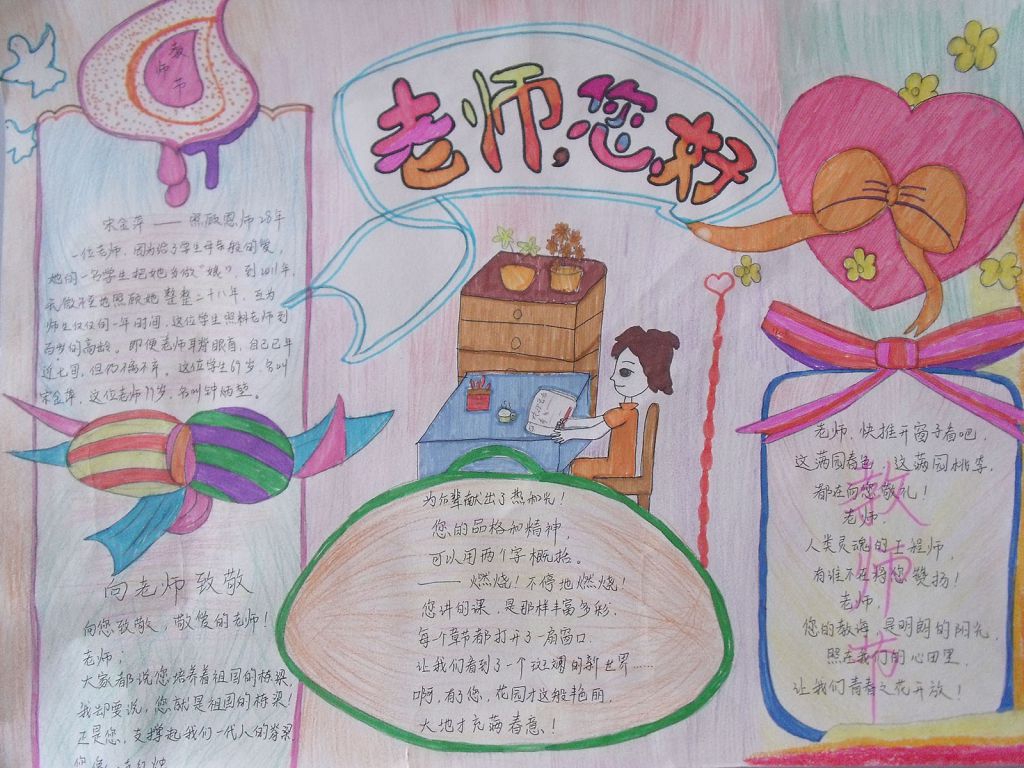 教
师
节
老师,您好
宋金萍——照顾恩师28年
一位老师,因为给了学生母亲般的爱,
她的一名学生把她当做"娘",到2011年,
无微不至地照顾她整整二十八年,互为
师生仅仅同一年时间,这位学生照料老师到
百岁的高龄。即便老师耳背眼盲,自己已年
近七旬,但仍不离不弃,这位学生67岁,名叫
宋金萍,这位老师,名叫钟丽堃。
向老师致敬
向您致敬,敬爱的老师!
老师:
大家都说您培养着祖国的栋梁,
我却要说,您就是祖国的栋梁!
正是您,支撑起我们一代人的脊梁
为尔辈献出了热和光!
您的品格和精神,
可以用两个字概括。
——燃烧!不停地燃烧!
您讲的课,是那样丰富多彩,
每个章节都打开了一扇窗口,
让我们看到了一个斑斓的新世界……
啊,有了您,花园才这般艳丽,
大地才充满春意!
教师节
老师,快推开窗子看吧,
这满园春色,这满园桃李,
都在向您敬礼!
老师,
人类灵魂的工程师,
有谁不在将您赞扬!
老师,
您的教诲,是明朗的阳光,
照在我们的心田里,
让我们青春之花开放!